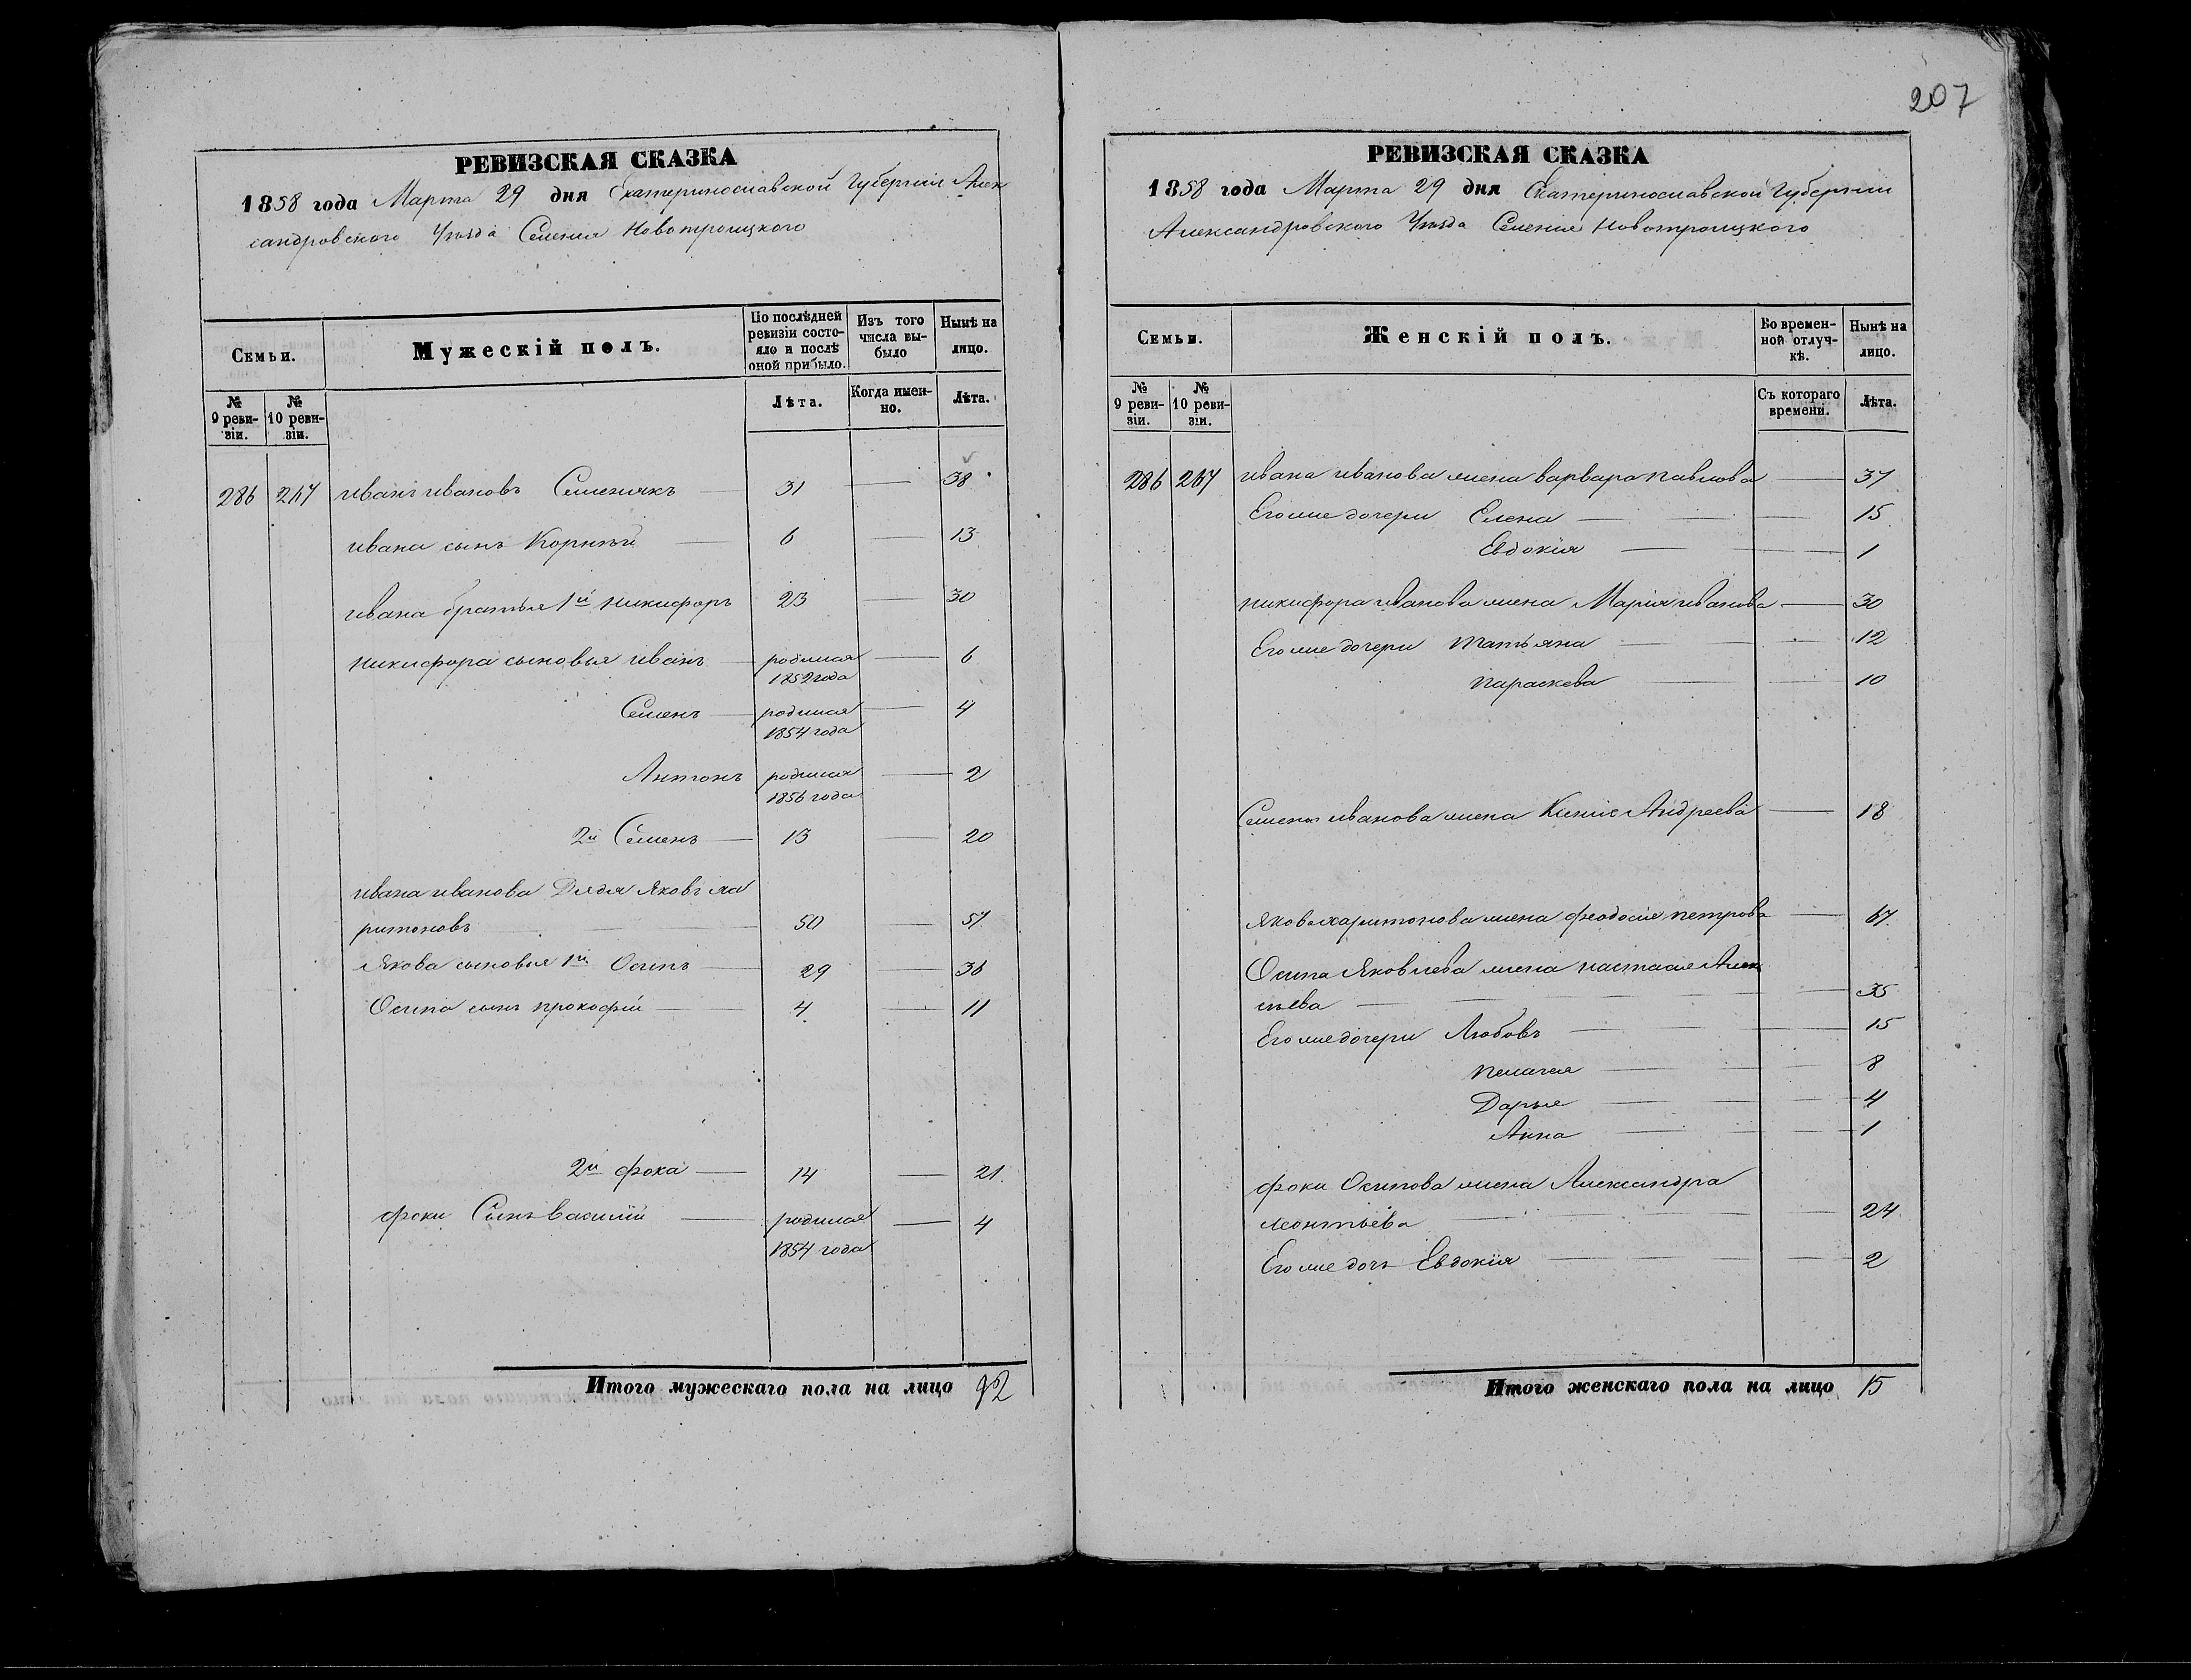 207
РЕВИЗСКАЯ СКАЗКА
1858 года Марта 29 дня Екатеринославской Губернии Алек
сандровского Уѣзда Селения Новотроицкого
Семьи.
Мужескій полъ.
По послѣдней ревизіи состояло и послѣ оной прибыло.
Изъ того числа выбыло
Нынѣ на лицо.
№ 9 ревизіи.
№ 10 ревизіи.
Лѣта.
Когда именно.
Лѣта.
286 267 иванъ ивановъ Семенякъ 31 — 38
ивана сынъ Корнѣй — 6 — 13
ивана братья 1й никифоръ 23 — 30
никифора сыновья иванъ — родился 1852 года — 6
Семенъ — родился 1854 года — 4
Антонъ родился 1856 года — 2
2й Семенъ — 13 — 20
ивана иванова Дядя Яковъ ха
ритоновъ — 50 — 57
Якова сыновья 1й Осипъ — 29 — 36
Осипа сынъ прокофій — 4 — 11
2й фока — 14 — 21
фоки Сынъ василій — родился 1854 года — 4
Итого мужескаго пола на лицо 12
РЕВИЗСКАЯ СКАЗКА
1858 года Марта 29 дня Екатеринославской Губернии
Александровского Уѣзда Селения Новотроицкого
Семьи.
Женскій полъ.
Во временной отлучкѣ.
Нынѣ на лицо.
№ 9 ревизіи.
№ 10 ревизіи.
Съ котораго времени.
Лѣта.
286 267 ивана иванова жена варвара павлова — 37
Его же дочери Елена — 15
Евдокія — 1
никифора иванова жена Марія иванова — 30
Его же дочери татьяна — 12
параскева — 10
Семена иванова жена Андреева — 18
Якова харитонова жена феодосия петрова — 67
Осипа Яковлева жена настасия Алек
сѣева — 35
Его же дочери Любовь — 15
пелагея — 8
Дарья — 4
Анна — 1
фоки Осипова жена Александра
леонтьева — 24
Его же дочь Евдокія — 2
Итого женскаго пола на лицо 15